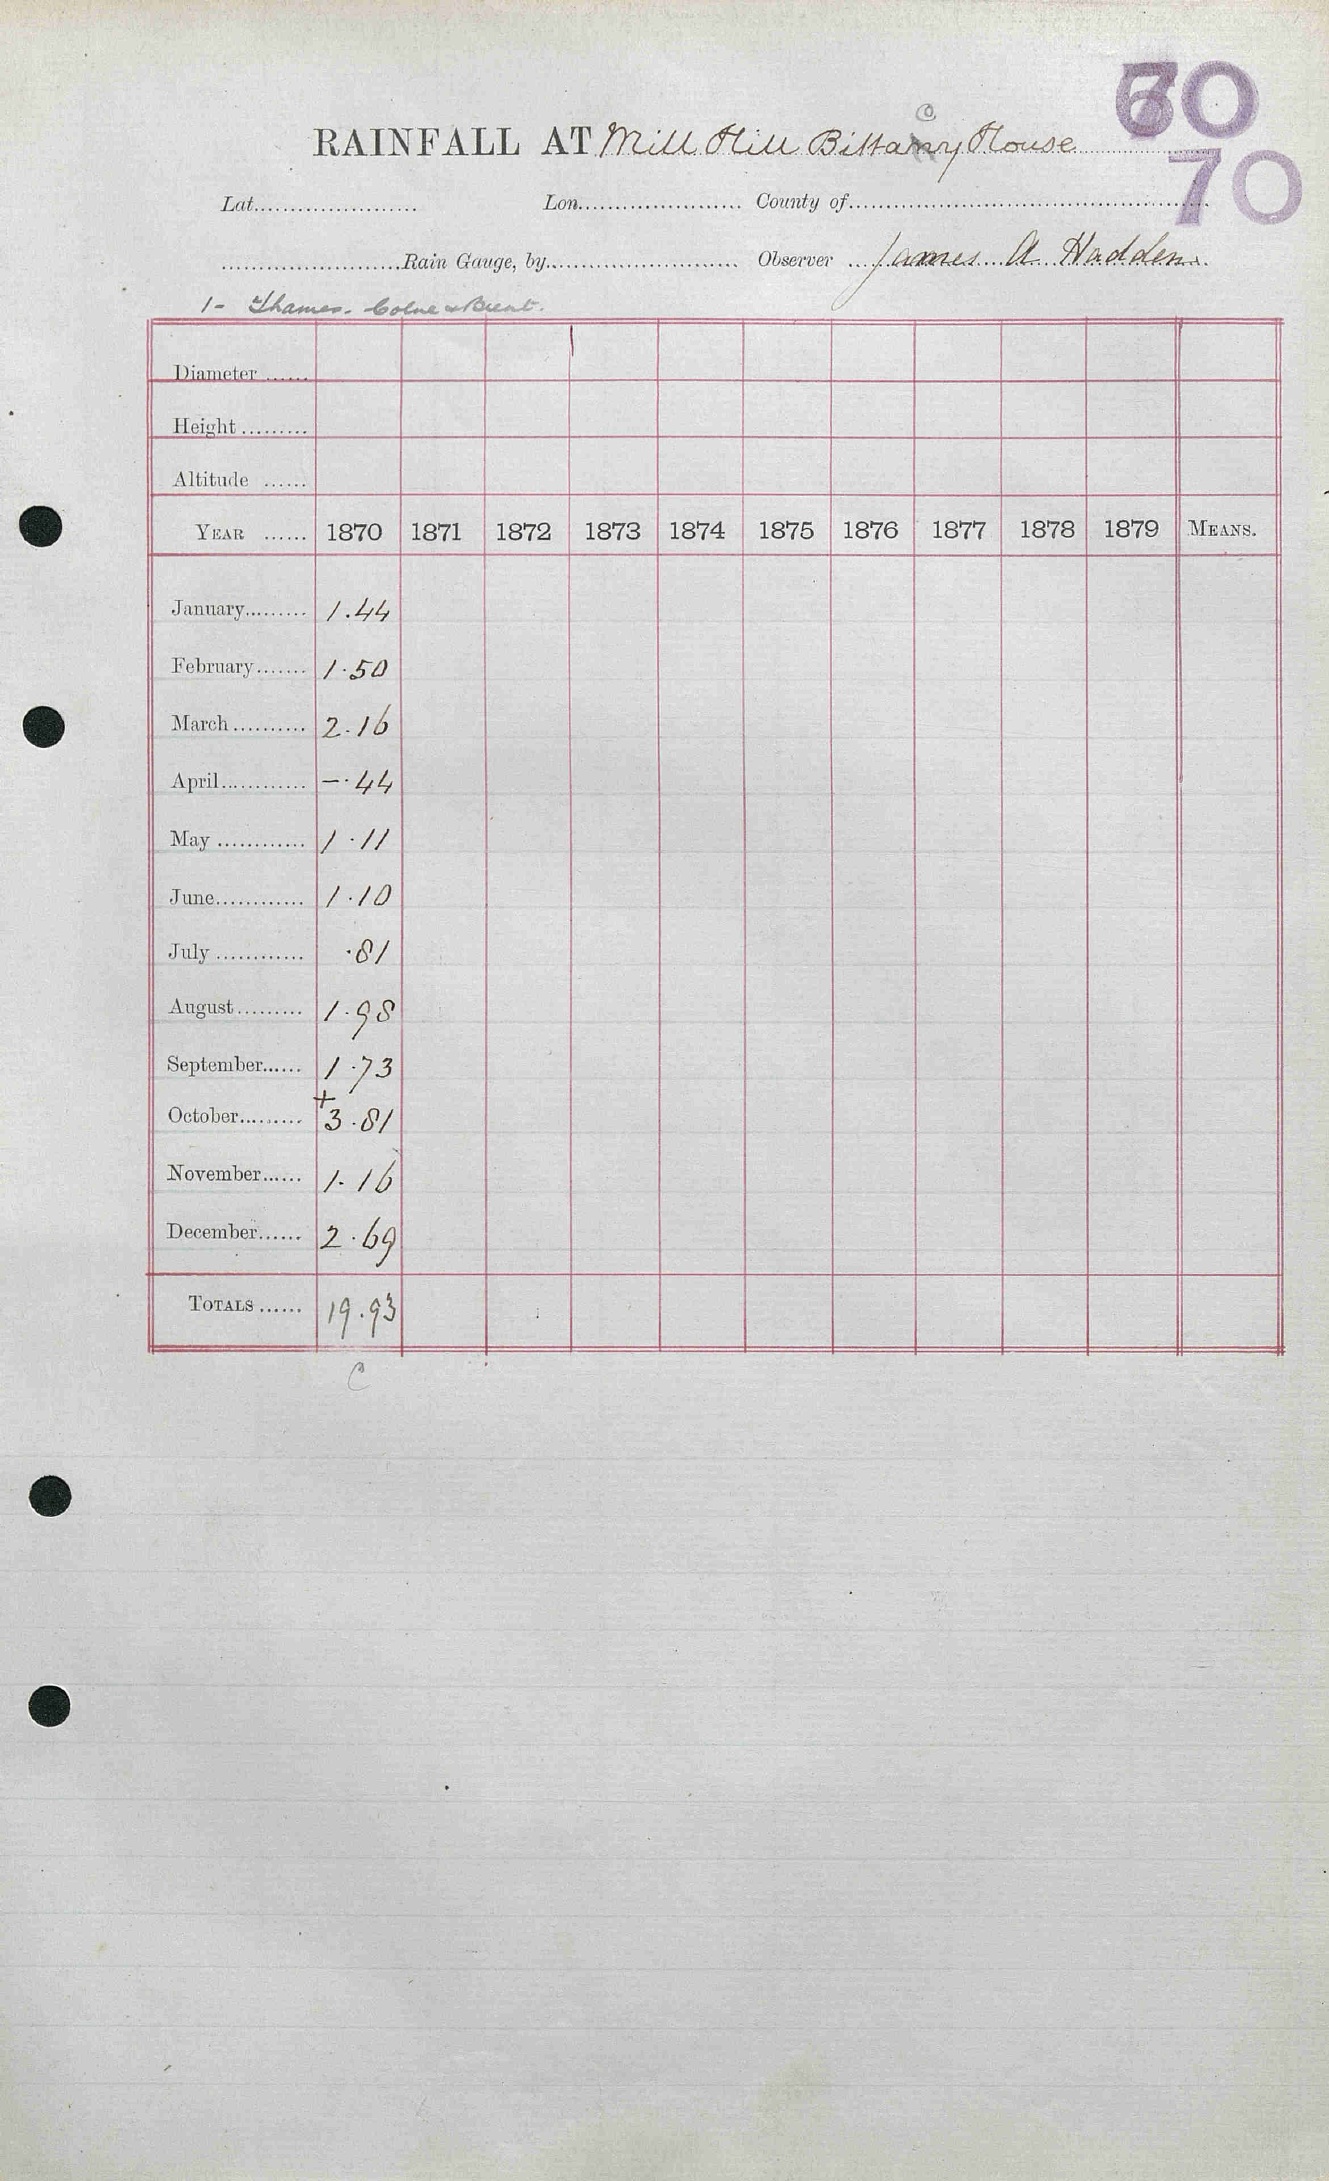 70
RAINFALL AT Mill Hill Bittany House
o
70
Lat. Lon. County of
Rain Gauge, by Observer James A Hadden
1- Thames. Colne & Brent.
Diameter
Height
Altitude
YEAR 1870 1871 1872 1873 1874 1875 1876 1877 1878 1879 MEANS.
January 1.44
February 1.50
March 2.16
April —.44
May 1.11
June 1.10
July .81
August 1.98
September 1.73
+
October 3.81
November 1.16
December 2.69
TOTALS 19.93
C